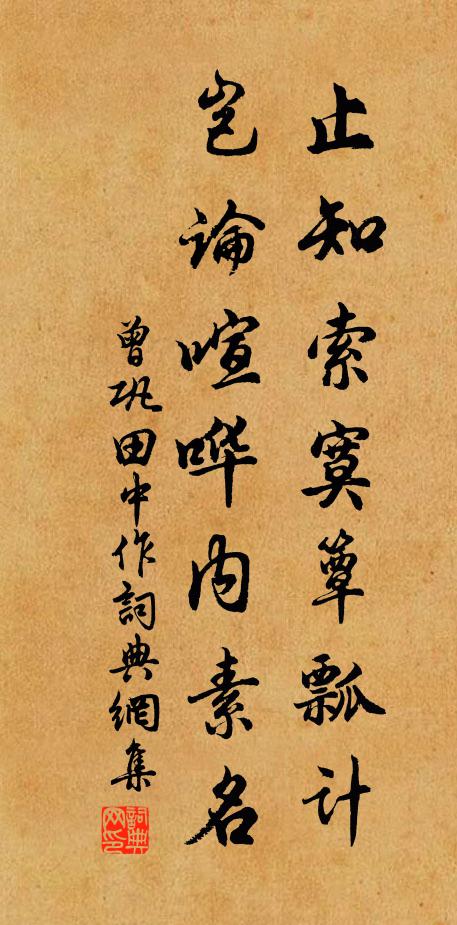 止知索寞簞瓢計
岂論喧哗内素名
曾巩田中作詞典網集
詞典网印